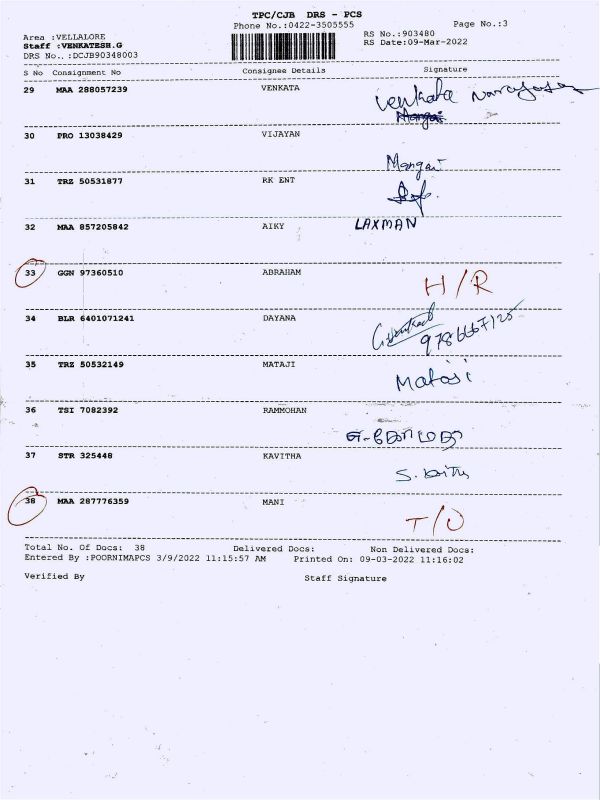 TPC/CJB DRS - PCS
Phone No.:0422-3505555 Page No.:3
Area :VELLALORE RS No.:903480
Staff :VENKATESH.G RS Date:09-Mar-2022
DRS No.. :DCJB90348003
S No Consignment No Consignee Details Signature
29 MAA 288057239 VENKATA Venkata
Mangai
30 PRO 13038429 VIJAYAN
Mangai
31 TRZ 50531877 RK ENT
32 MAA 857205842 AIKY LAXMAN
33 GGN 97360510 ABRAHAM H/R
34 BLR 6401071241 DAYANA
35 TRZ 50532149 MATAJI Mataji
36 TSI 7082392 RAMMOHAN
37 STR 325448 KAVITHA
38 MAA 287776359 MANI T/O
Total No. Of Docs: 38 Delivered Docs: Non Delivered Docs:
Entered By :POORNIMAPCS 3/9/2022 11:15:57 AM Printed On: 09-03-2022 11:16:02
Verified By Staff Signature